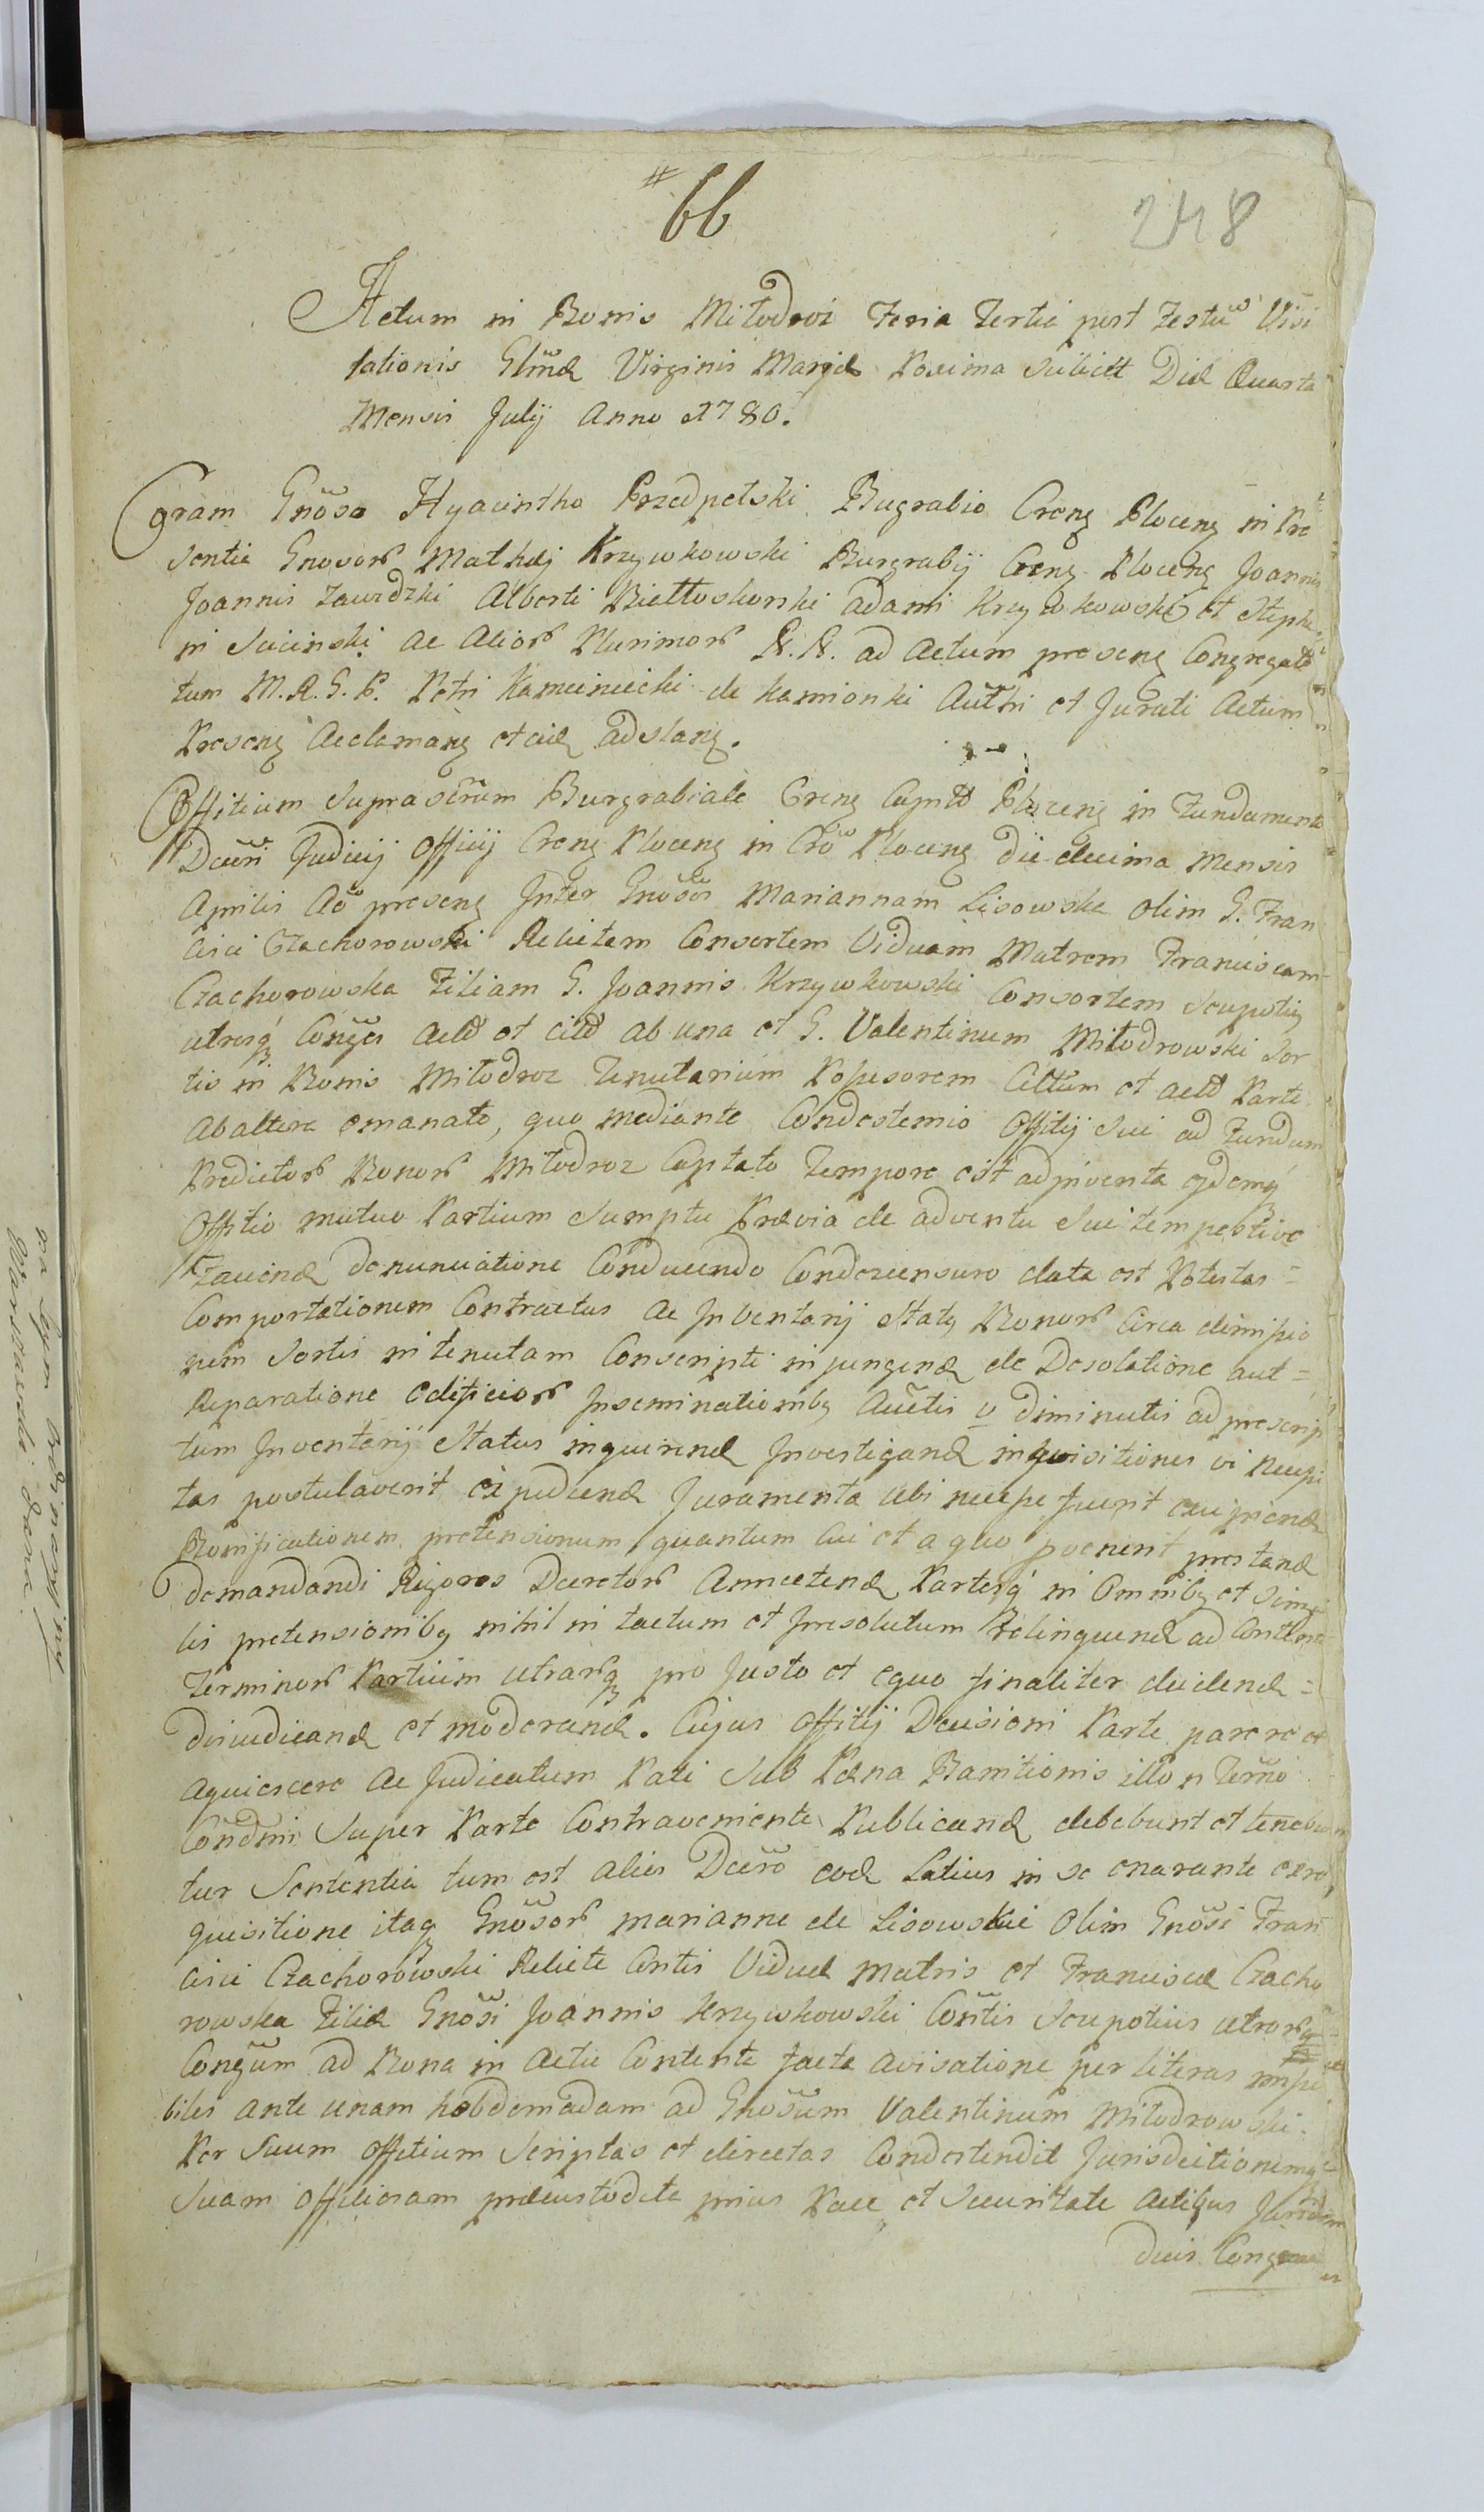 # 66
248
Actum in Bonis Miłodroż Feria Tertia post Festũ Visi
tationis Glmæ Virginis Mariæ Proxima scilicet Die Quarta
Mensis Julij Anno 1780.
Coram Gnõso Hyacintho Przedpełski Bugrabio Cren̄ Plocen̄ in Pre
sentia Gnosor̃ Mathej Krzywkowski Burgrabij Cren̄ Plocen̄ Joannis
Joannis Zawidzki Alberti Biełłoskorski Adami Krzywkowski et Steph
ni Sucinski ac Alior̃ Plurimor̃ N. N. ad Actum presens Congregat
tum M. R. G. P. Petri Kamieniecki de Kamionki Authi et Jurati Actum
Presens Acclamans et adstans.
Offitium Suprascrũm Burgrabiale Cren̄ Captt Plocen̄ in Fundamento
Decrĩ Judicij Officij Cren̄ Plocen̄ in Crõ Plocen̄ die decima Mensis
Aprilis Aõ presen̄ Inter Gnõsos Mariannam Lisowska olim G. Fran
cisci Czachorowski Relictam Consortem Viduam Matrem Franciscam
Czachorowska Filiam G. Joannis Krzywkowski Consortem
utrosq̃ Conges Actt et citt ab una et G. Valentinum Miłodrowski Sor
tis in Bonis Miłodroz Tenutarium Possesorem Cittum et actt Parte
ab altera emanato, quo mediante Offitij Sui ad Fundum
Predictor̃ Bonor̃ Miłodroz Captato Tempore est adinventa
Offitio mutuo Partium Sumptu Prævia de adventu Sui tempestive
denunciatione Conducendo Condescensuro data est Potestas =
Comportationem Contractus ac Inventarij Status Bonor̃ Circa dimissio
nem Sortis in tenutam Conscripti injungend de Desolatione aut =
Reparatione edificior̃ Inseminationibg Auctis v diminutis ad prescrip
tum Inventarij Status inquirend Investigand inquisitiones si necessi
tas postulaverit expediend Juramenta ubi necesse fuerit excipiend
Bonificationem pretensionum quantum cui et a quo prestand
demandandi Rigores Decretor̃ Annectend Partesq̃ in Omnibg et Singu
lis pretensionibg nihil in tactum et Iresolutum relinquend ad Content
Terminor̃ Partium utrarq̃ pro Justo et equo finaliter decidend =
dijudicand et moderand. Cujus Offitij Decisioni Parte parere et
aquiescere ac Judicatum Pati Sub Pæna Banitionis illo n Termõ
Condmi Super Parte Contraveniente Publicand debebunt et tenebun
tur Sententia tum est alias Decrõ eod Latius in se enarante ex re
quisitione itaq̃ Gnõsor̃ Marianne de Lisowskie olim Gnõsi Fran
cisci Czachorowski Relicte Contis Viduæ Matris et Franciscæ Czacho
rowska Filiæ Gnõsi Joannis Krzywkowski Contis utrorq̃
Congũm ad Bona in Actu Contenta facta avisatione per literas
biles ante unam hebdomadam ad Gnosum Valentinum Miłodrowski
Per Suum Offitium Scriptas et directas Condestendit Jurisdictionemq̃
Suam Offitiosam præcustodita prius Pace et Securitate Actibus